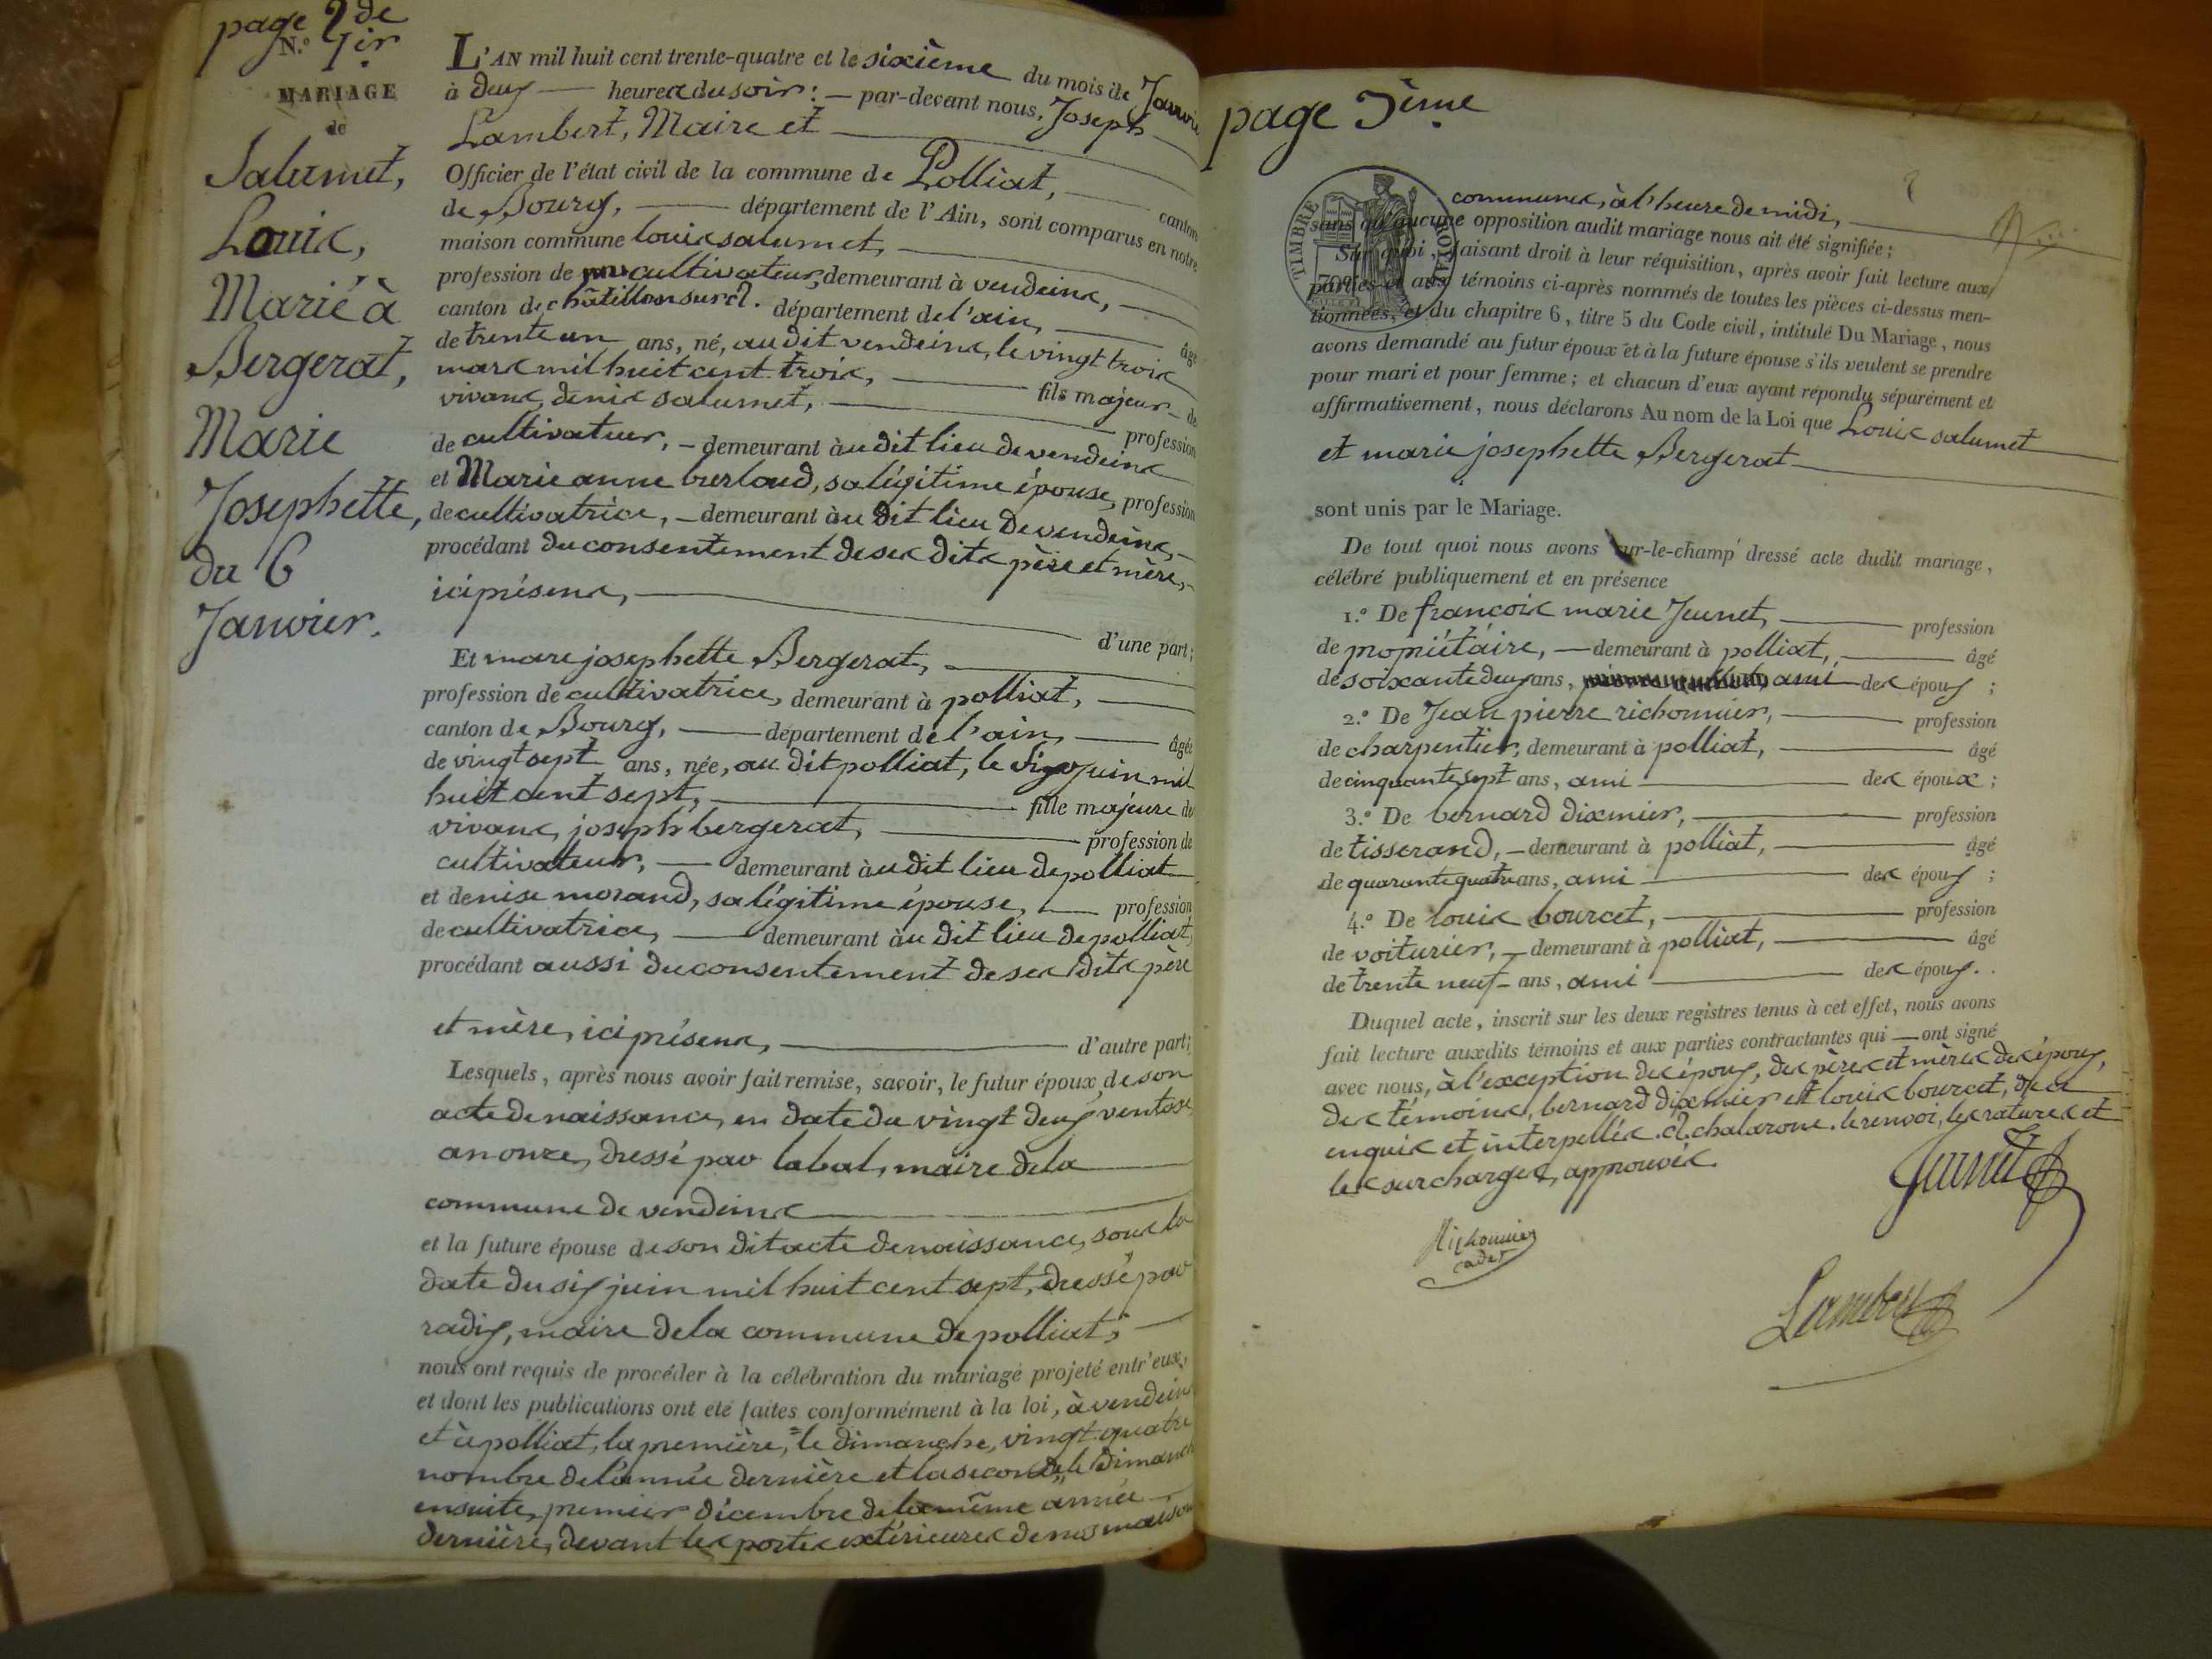 page 2de
N.o 1er
MARIAGE
de
Salumet,
Louis,
Marié à
Bergerat,
Marie
Josephette,
du 6
Janvier.
L'AN mil huit cent trente-quatre et le sixième du mois de Janvier
à deux heures du soir : par-devant nous, Joseph
Lambert, Maire et
Officier de l'état civil de la commune de Polliat, canton
de Bourg, département de l'Ain, sont comparus en notre
maison commune louis salumet,
profession de cultivateur, demeurant à vendeins,
canton de châtillon sur cl. département de l'ain, âgé
de trente un ans, né, au dit vendeins, le vingt trois
mars mil huit cent trois, fils majeur de
vivans, denis salumet, profession
de cultivateur, demeurant à u dit lieu de vendeins
et Marie anne burloud, sa légitime épouse, profession
de cultivatrice, demeurant à u dit lieu de vendeins,
procédant du consentement de ses dits père et mère,
ici présens, d'une part;
Et marie josephette Bergerat,
profession de cultivatrice, demeurant à polliat,
canton de Bourg, département de l'ain, âgée
de vingt sept ans, née, au dit polliat, le six juin mil
huit cent sept, fille majeure de
vivans, joseph bergerat, profession de
cultivateur, demeurant à u dit lieu de polliat
et denise morand, sa légitime épouse, profession
de cultivatrice, demeurant à u dit lieu de polliat,
procédant aussi du consentement de ses dits père
et mère, ici présens, d'autre part;
Lesquels, après nous avoir fait remise, savoir, le futur époux, de son
acte de naissance, en date du vingt deux ventose
an onze, dressé par labal, maire de la
commune de vendeins
et la future épouse de son dit acte de naissance, sous la
date du six juin mil huit cent sept, dressé par
radix, maire de la commune de polliat;
nous ont requis de procéder à la célébration du mariage projeté entr'eux,
et dont les publications ont été faites conformément à la loi, à vendeins
et à polliat, la première, le dimanche, vingt quatre
nombre de l'année dernière et la seconde, le Dimanche
ensuite, premier décembre de la même année
dernière, devant les portes extérieures de nos maisons
page 3ème
TIMBRE ROYAL
70c
communes, à l'heure de midi,
sans qu'aucune opposition audit mariage nous ait été signifiée;
Sur quoi, faisant droit à leur réquisition, après avoir fait lecture aux
parties et aux témoins ci-après nommés de toutes les pièces ci-dessus men-
tionnées, et du chapitre 6, titre 5 du Code civil, intitulé Du Mariage, nous
avons demandé au futur époux et à la future épouse s'ils veulent se prendre
pour mari et pour femme; et chacun d'eux ayant répondu séparément et
affirmativement, nous déclarons Au nom de la Loi que Louis salumet
et marie josephette Bergerat
sont unis par le Mariage.
De tout quoi nous avons sur-le-champ dressé acte dudit mariage,
célébré publiquement et en présence
1.o De françois marie Jeunet, profession
de propriétaire, demeurant à polliat, âgé
de soixante deux ans, ami des époux;
2.o De Jean pierre richonnier, profession
de charpentier, demeurant à polliat, âgé
de cinquante sept ans, ami des époux;
3.o De bernard dixmier, profession
de tisserand, demeurant à polliat, âgé
de quarante quatre ans, ami des époux;
4.o De louis bourcet, profession
de voiturier, demeurant à polliat, âgé
de trente neuf ans, ami des époux.
Duquel acte, inscrit sur les deux registres tenus à cet effet, nous avons
fait lecture auxdits témoins et aux parties contractantes qui ont signé
avec nous, à l'exception des époux, des pères et mères des époux,
des témoins, bernard dixmier et louis bourcet, de ce
enquis et interpellés. cl. chalarone. le renvoi, les ratures et
les surcharges, approuvés.
Jeunet
Richonnier
cadet
Lambert